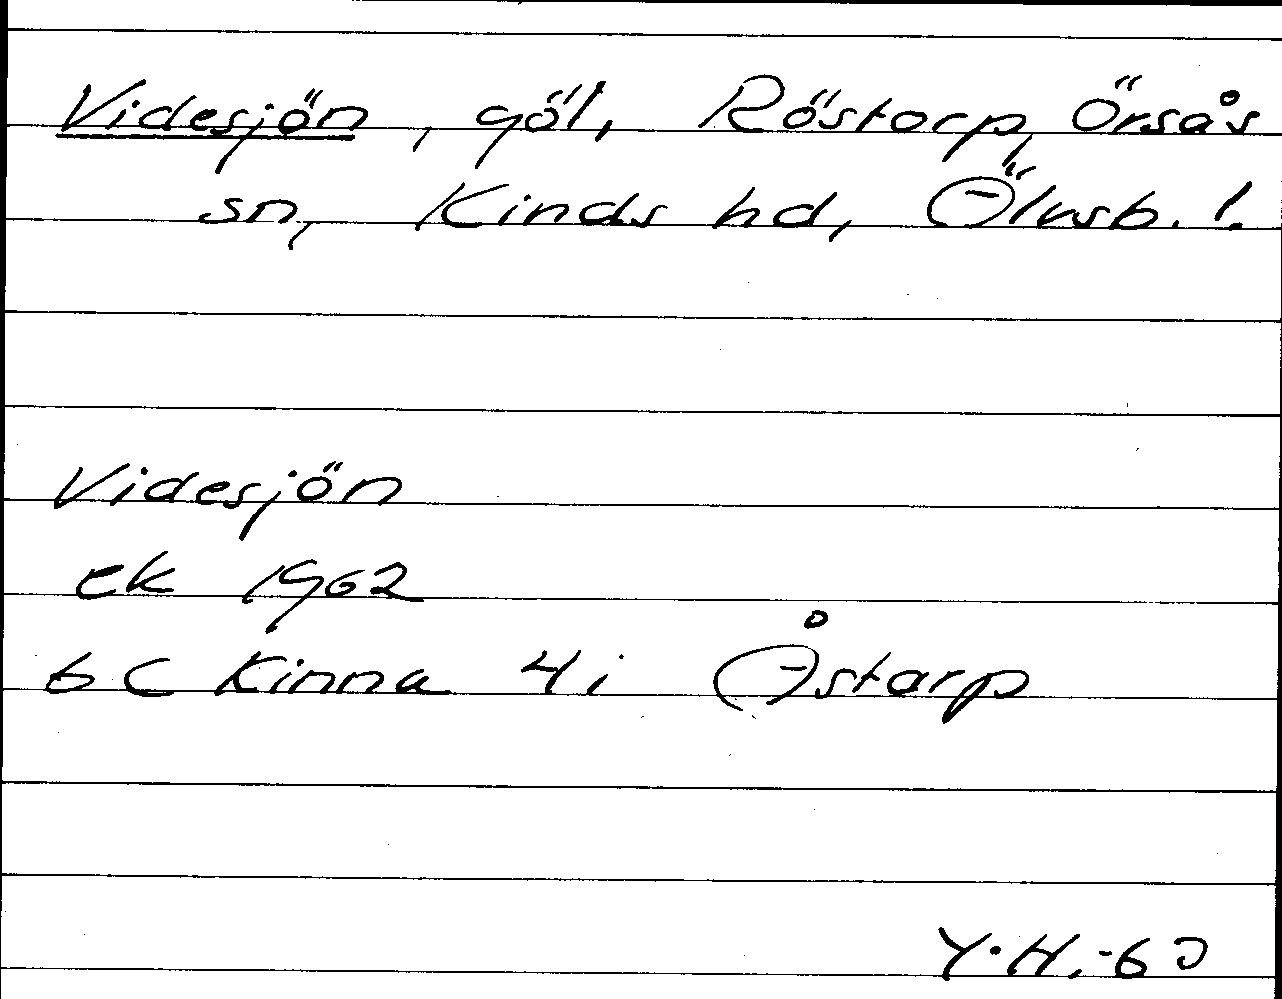 Videsjön, göl, Röstorp, Örsås
sn, Kinds hd, Älvsb. l.
Videsjön
ek 1962
6 C Kinna 4 i Åstarp
Y.H.-63